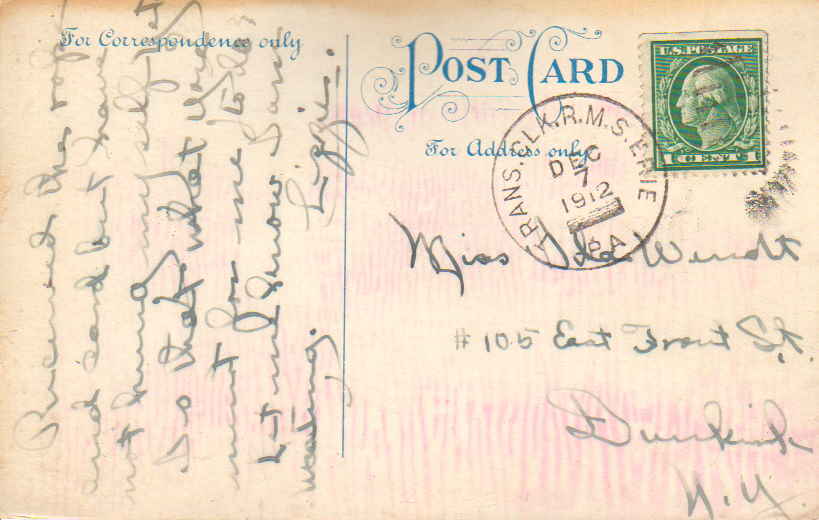 For Correspondence only
POST CARD
For Address only
U.S. POSTAGE
1 CENT 1
TRANS. CLK. R.M.S. ERIE
DEC
7
1912
PA
Miss Ida Wendt
# 105 East Front St.
Dunkirk
N.Y
Received the
and card but have
not hung myself
Do that what you
meant for me to do
Let me know
Lizzie.